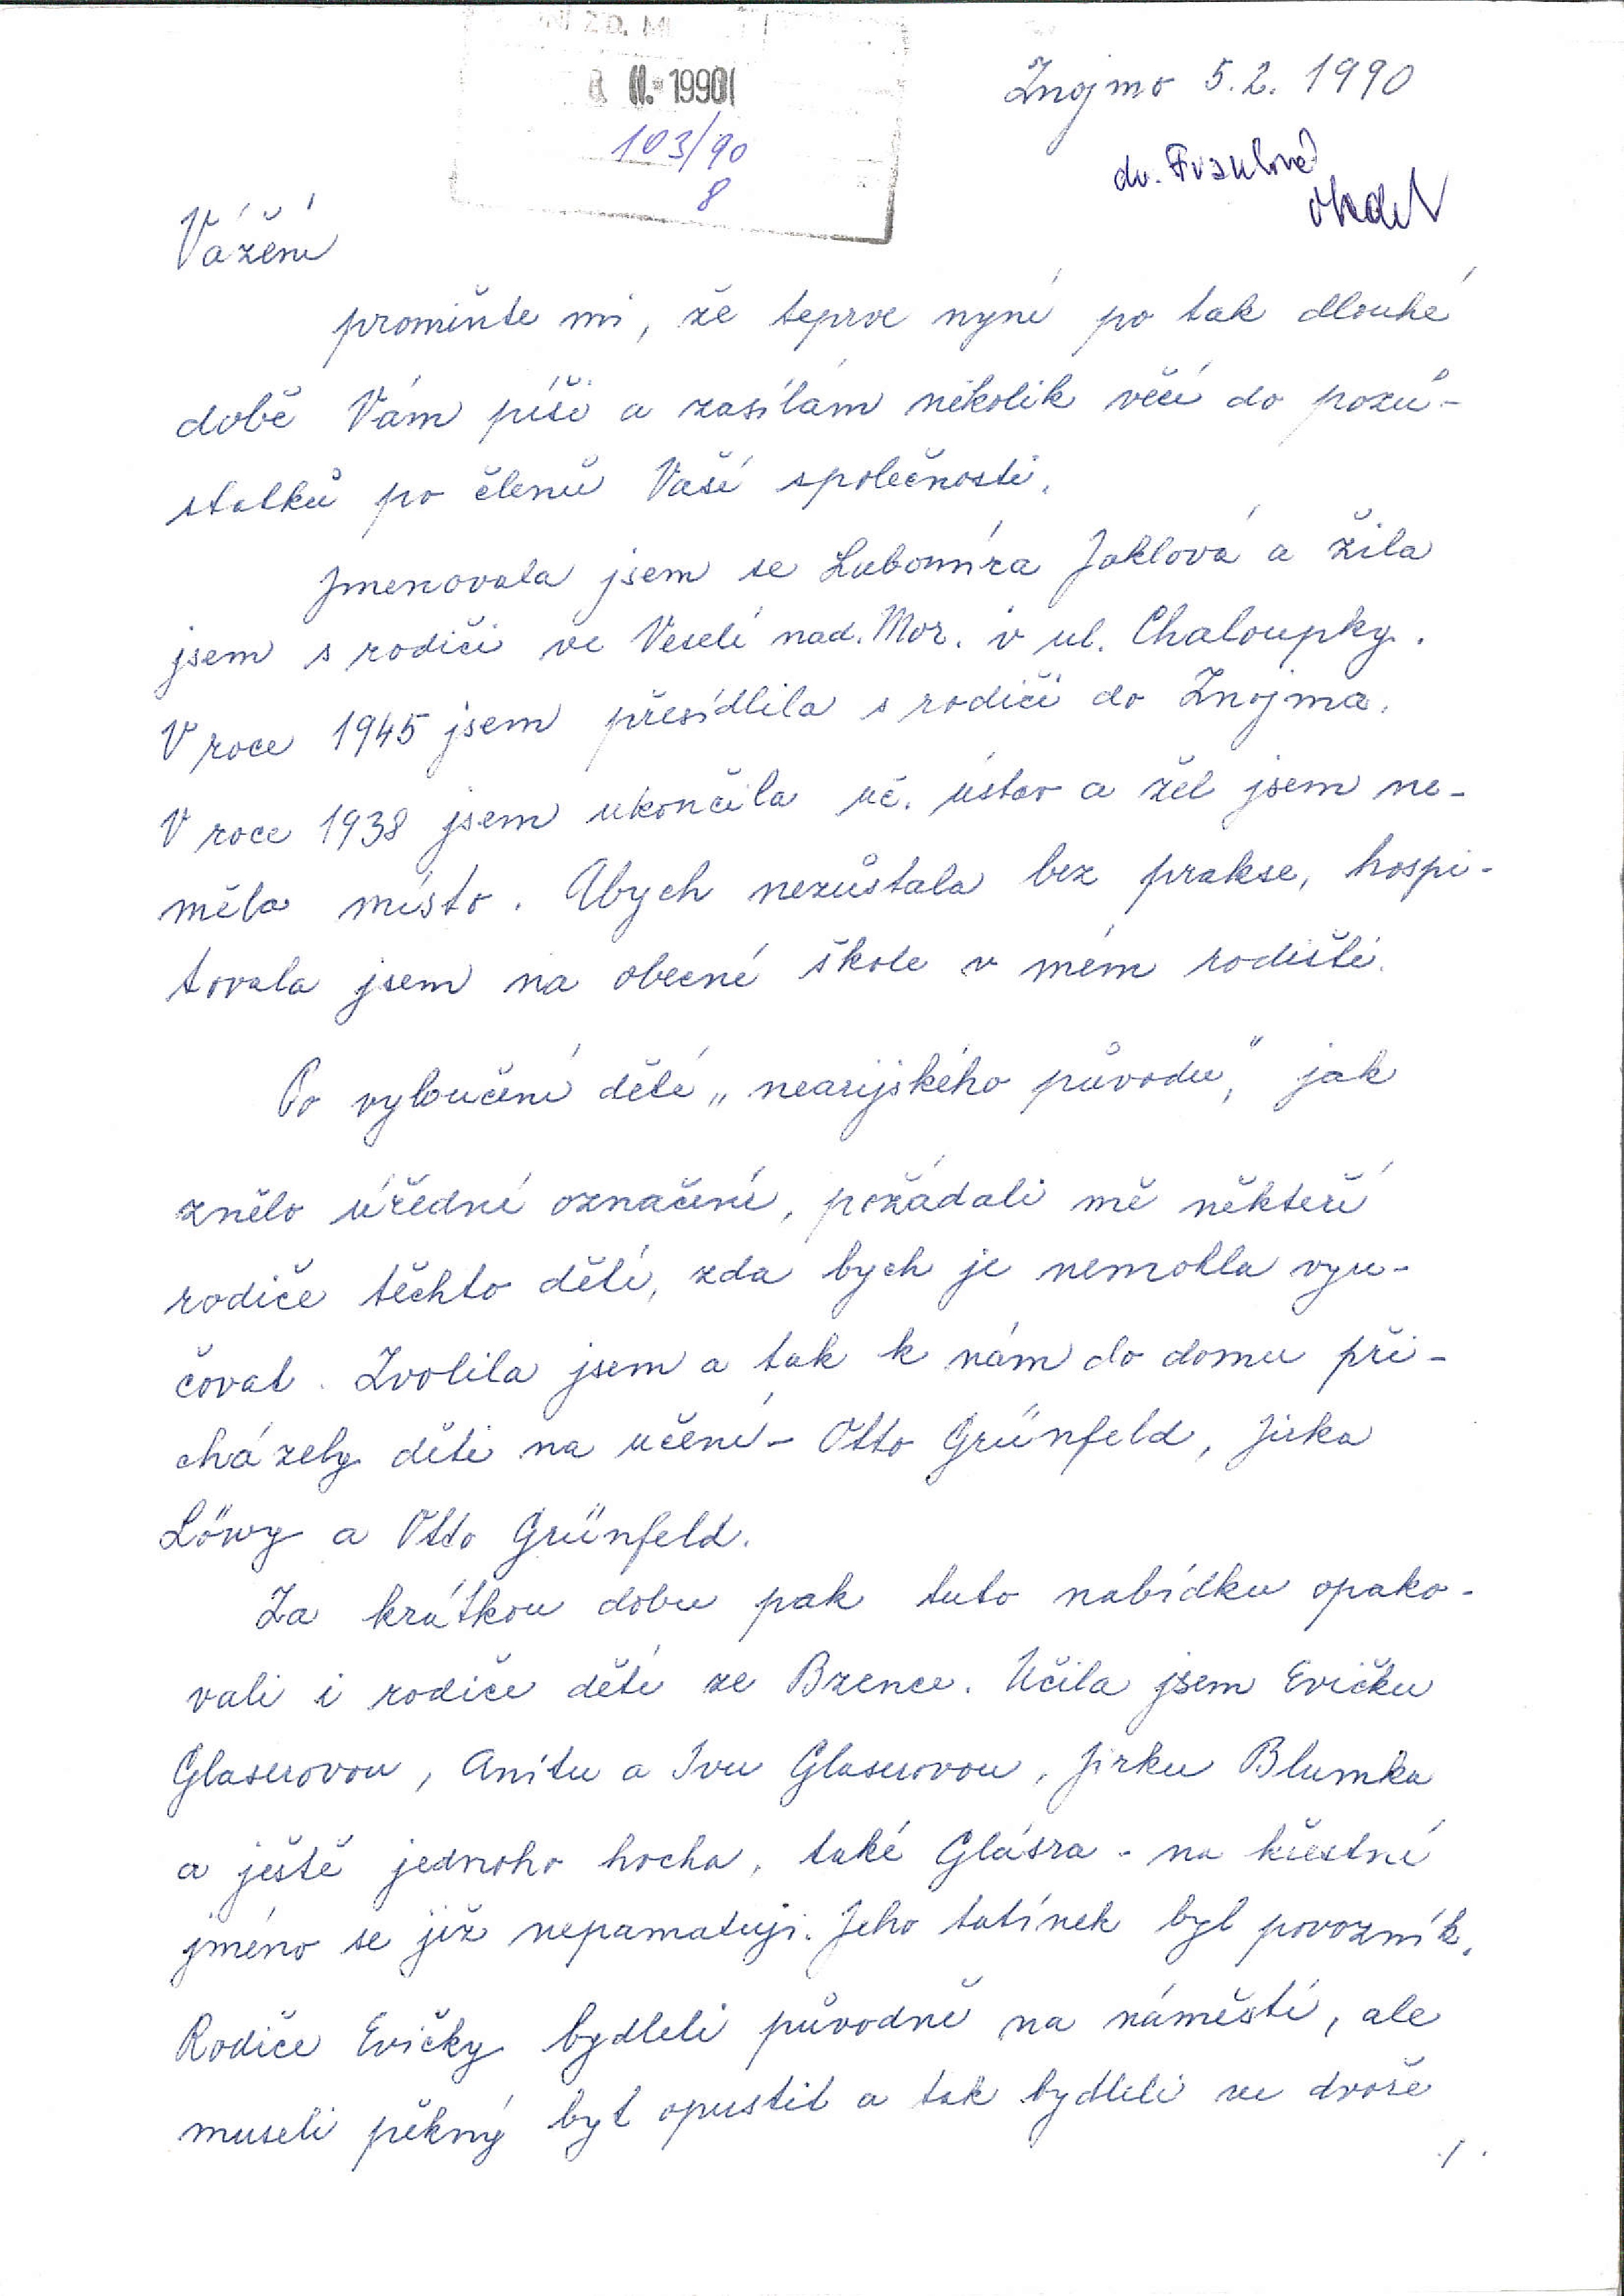 II. 1990
103/90
8
Znojmo 5.2. 1990
dr. Franková
Vážení
promiňte mi, že teprve nyní po tak dlouhé
době Vám píši a zasílám několik věcí do pozů-
statků po členů Vaší společnosti.
Jmenovala jsem se Lubomíra Jaklová a žila
jsem s rodiči ve Veselí nad. Mor. v ul. Chaloupky.
V roce 1945 jsem přesídlila s rodiči do Znojma.
V roce 1938 jsem ukončila uč. ústav a žel jsem ne-
měla místo. Abych nezůstala bez prakse, hospi-
tovala jsem na obecné škole v mém rodišti.
Po vyloučení dětí „nearijského původu", jak
znělo úřední označení, požádali mě někteří
rodiče těchto dětí, zda bych je nemohla vyu-
čovat. Zvolila jsem a tak k nám do domu při-
cházely děti na učení - Otto Grünfeld, Jirka
Löwy a Otto Grünfeld.
Za krátkou dobu pak tuto nabídku opako-
vali i rodiče dětí ze Bzence. Učila jsem Evičku
Glaserovou, Anitu a Ivu Glaserovou, Jirku Blumka
a ještě jednoho hocha, také Glásra - na křestní
jméno se již nepamatuji. Jeho tatínek byl povozník.
Rodiče Evičky bydleli původně na náměstí, ale
museli pěkný byt opustit a tak bydleli ve dvoře
./.